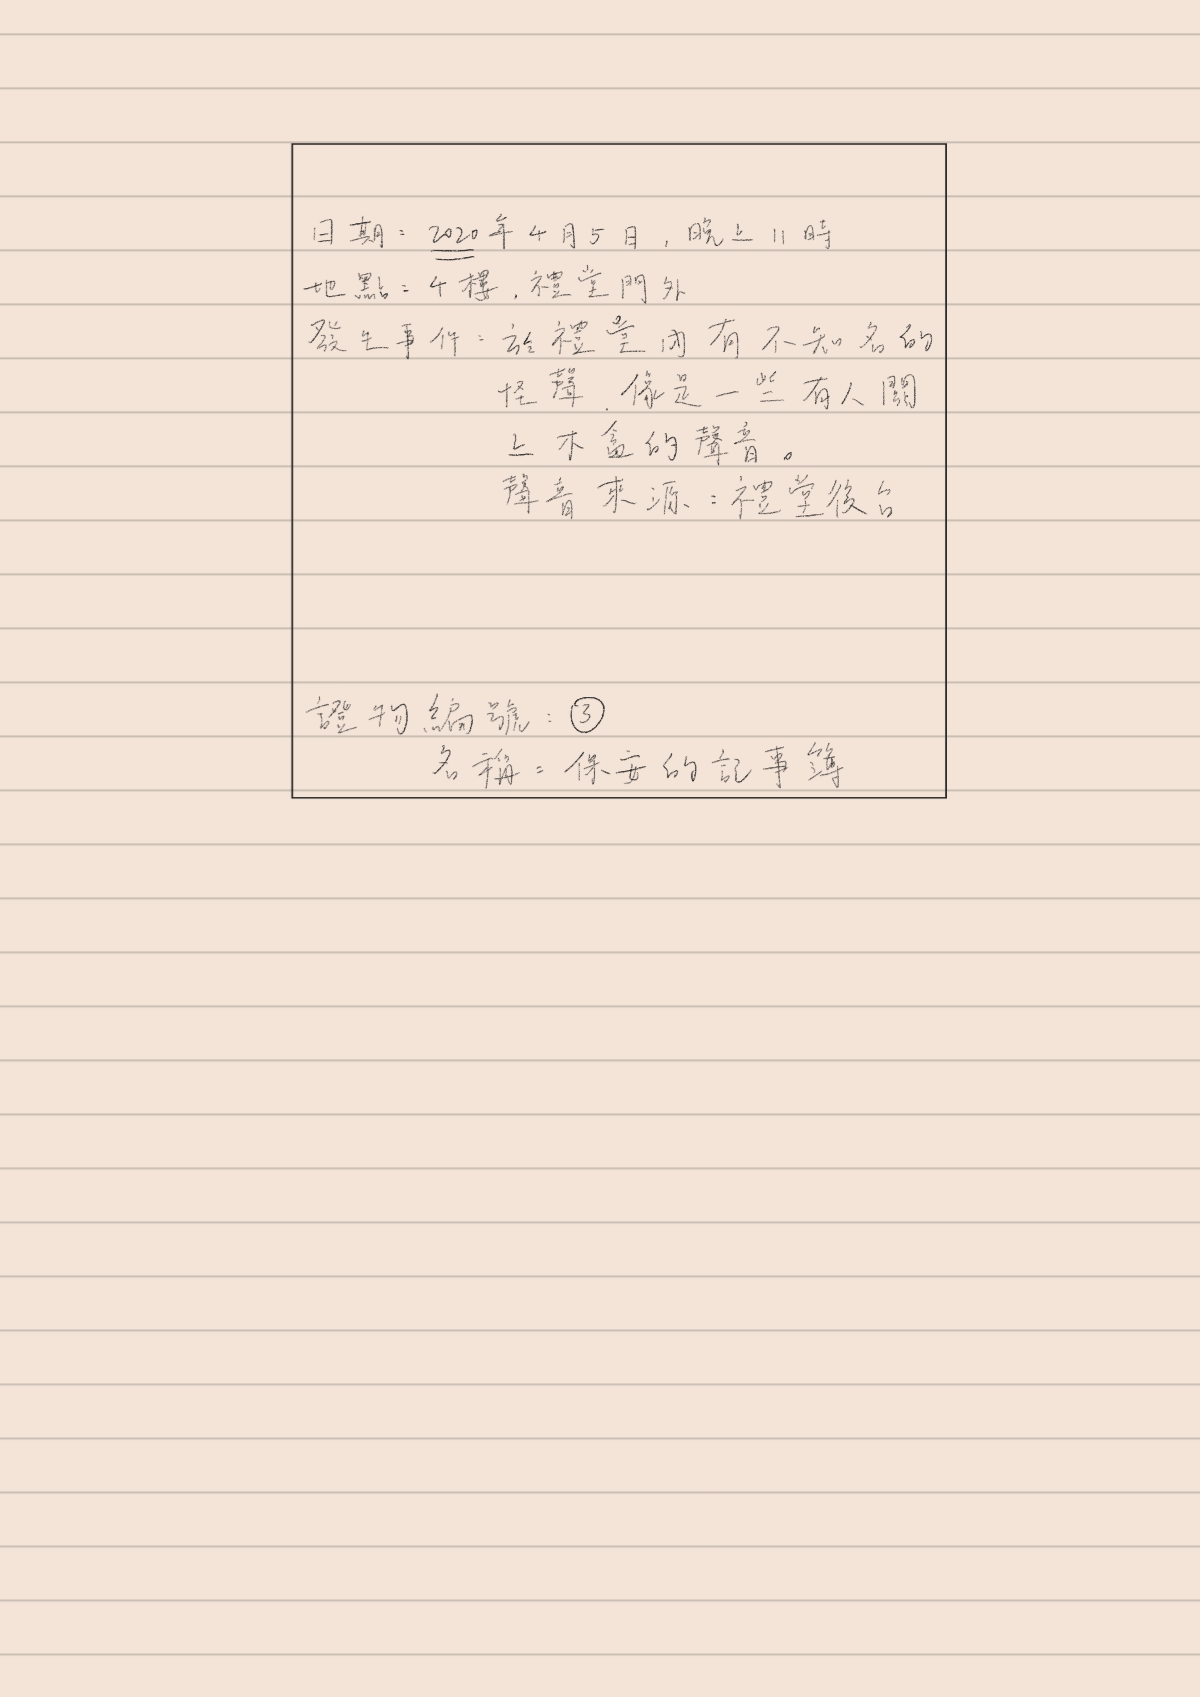 日期：2020年4月5日，晚上11時
地點：4樓，禮堂門外
發生事件：於禮堂內有不知名的
怪聲，像是一些有人關
上木盒的聲音。
聲音來源：禮堂後台
證物編號：③
名稱：保安的記事簿